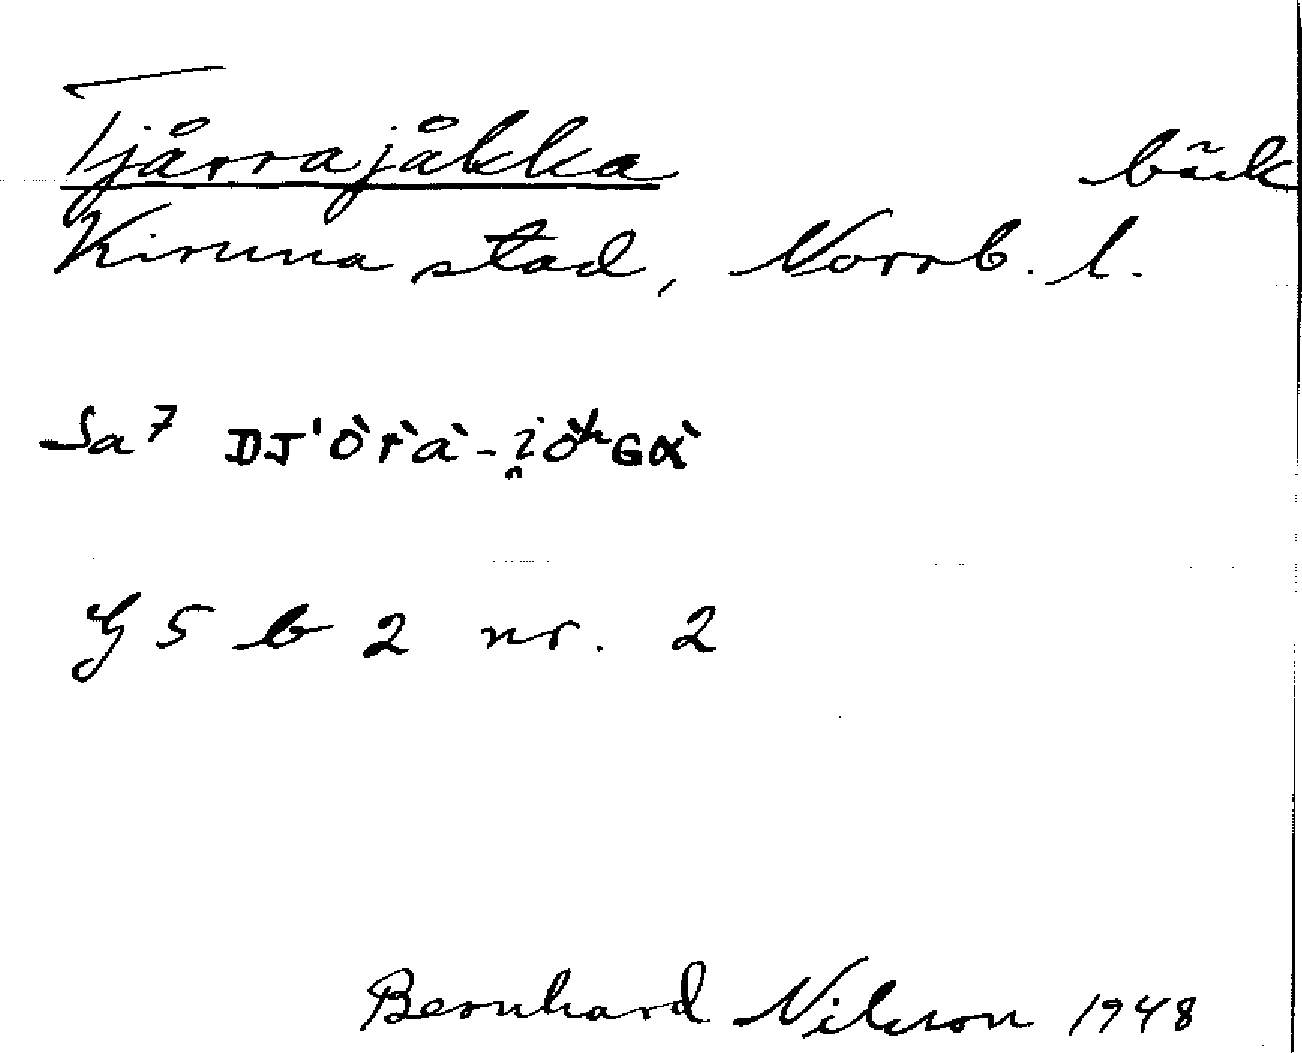 Tjårrajåkka bäck
Kiruna stad, Norrb. l.
Sa7
G 5 b 2 nr. 2
Bernhard Nilsson 1948